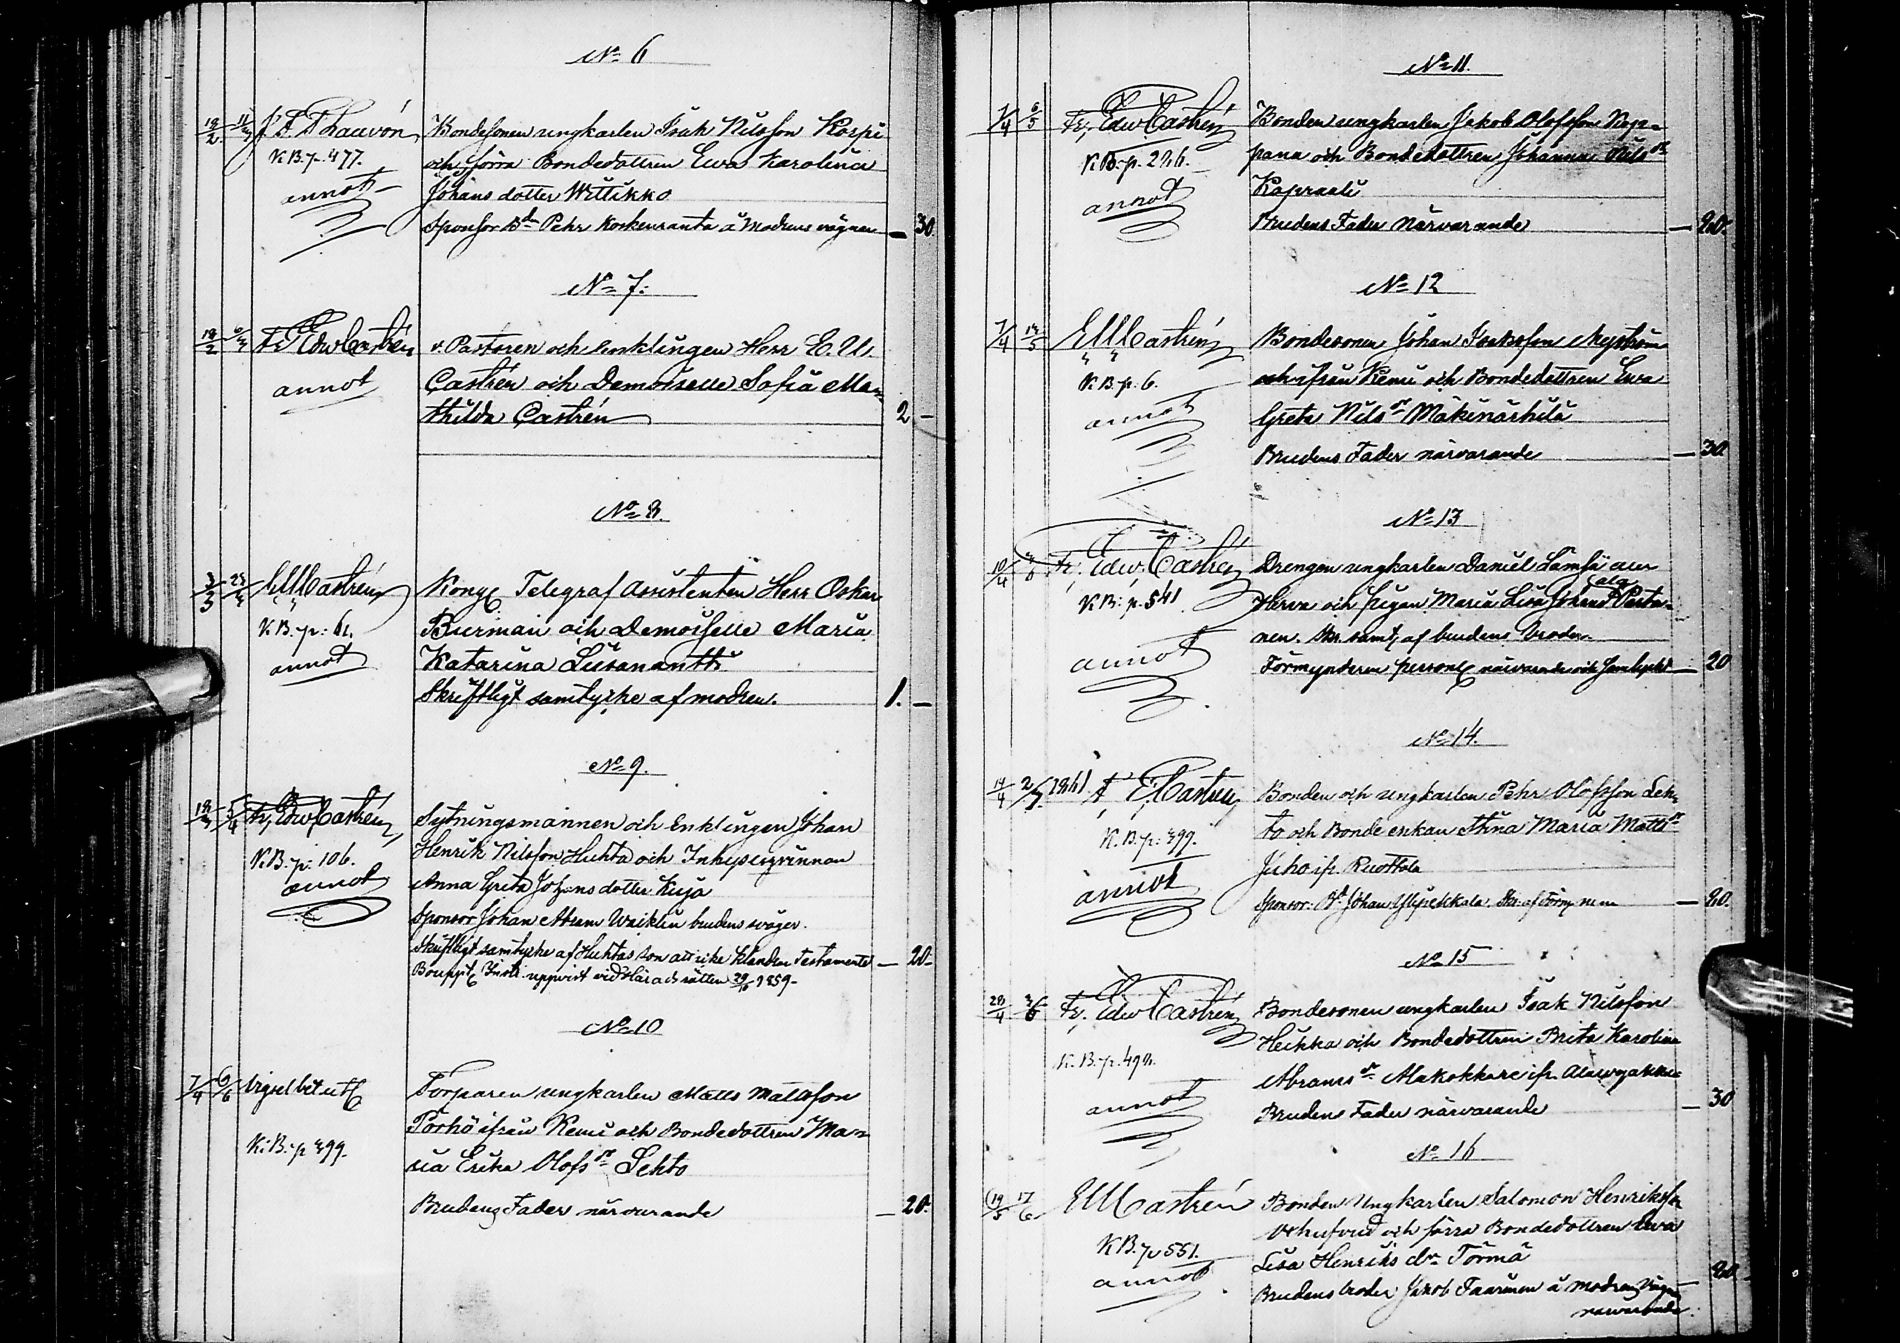 No 6
18/2 11/3
K.B. p. 477.
annot
Bondesonen ungkarlen Isak Nilsson Kospi
och förra Bondedottren Ewa Karolina
Johans dotter Wittikko
Sponsor Bdn Pehr Korkeuranta å Modrens vägnar — 30
No 7.
18/2
Fr. Edw. Castrén
annot
v. Pastoren och Enklingen Herr E. U.
Castrén och Demoiselle Sofia Ma-
thilda Castrén
2 —
No 8.
3/3
Castrén
K.B. p: 61.
annot
Kongl Telegraf Assistenten Herr Oskar
Burman och Demoiselle Maria
Katarina Liisanantti
Skriftligt samtycke af modren. 1. —
No 9.
18/3 5/4 Fr. Edw. Castrén
K.B. p: 106.
annot
Sytningsmannen och Enklingen Johan
Henrik Nilsson Huhta och Inhysesqvinnan
Anna Greta Johans dotter Kuja
Sponsor Johan Abram Waikku brudens svåger.
Skriftligt samtycke af Huhtas son att icke klandra Testamente — 20 —
1859 —
No 10
7/4 6/6
K.B. p 399.
Torparen ungkarlen Matts Mattsson
Pörhö ifrån Kemi och Bondedottren Ma-
ria Erika Olofs dr Lehto
Brudens Fader närvarande — 20.
No 11.
1/4 6/5
Fr. Edw Castrén
K.B. p. 226.
annot
Bonden ungkarlen Jakob Olofsson Nap-
pana och Bondedottren Johanna Nils dr
Kapraali
Brudens Fader Närvarande — 20.
No 12
7/4 13/5
Castrén
K.B. p. 6.
annot
Bondesonen Johan Isaksson Nyström
ifrån Kemi och Bondedottren Ewa
Greta Nils dr Mäkinärhilä
Brudens Fader närvarande — 30
No 13
10/4
Fr. Edw. Castrén
K.B: p. 541
annot
Drengen ungkarlen Daniel Lämsä
Herva och pigan Maria Lisa Johans dr Parta-
nen. Skr. samt. af brudens broder.
Förmyndaren personl närvarande och samtyckt — 20
No 14.
14/4 2/7 1861 E. Castrén
K.B. p: 399.
annot
Bonden och ungkarlen Pehr Olofsson Leh-
to och Bonde enkan Stina Maria Matts dr
Juho ifr. Ruottala
Sponsor: Johan Ylipekkala — 20.
No 15
28/4 3/6 Fr. Edw Castrén
K.B. p. 492.
annot
Bondesonen ungkarlen Isak Nilsson
Heikka och Bondedottren Brita Karolina
Abrams dr Alakokkare ifr. Alavojakkala
Brudens Fader närvarande — 30
No 16
19/5 17/6 Castrén
K.B. p 551.
annot
Bonden Ungkarlen Salomon Henriksson
och förra Bondedottren Ewa
Lisa Henriks dr Törmä
Brudens broder Jakob Taarinen å modrens vägnar — 20 —
närvarande.